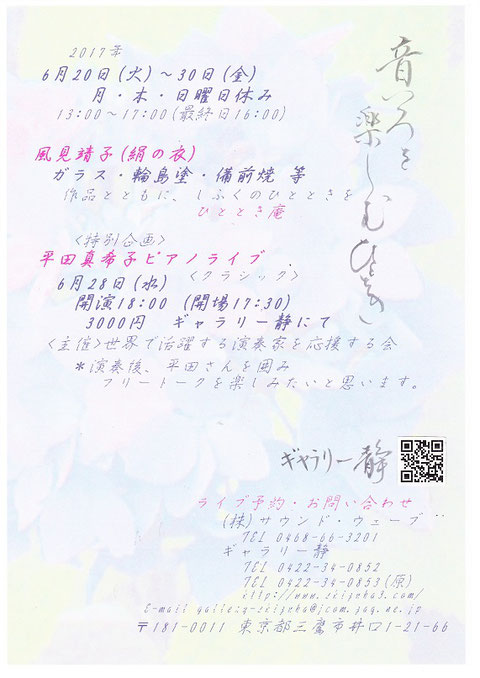 音いろを
楽しむひととき
2017年
6月20日(火)～30日(金)
月・木・日曜日休み
13:00～17:00(最終日16:00)
風見靖子(絹の衣)
ガラス・輪島塗・備前焼 等
作品とともに、しふくのひとときを
ひととき庵
<特別企画>
平田真希子ピアノライブ
6月28日(水) <クラシック>
開演18:00 (開場17:30)
3000円 ギャラリー静にて
<主催>世界で活躍する演奏家を応援する会
*演奏後、平田さんを囲み
フリートークを楽しみたいと思います。
ギャラリー静
ライブ予約・お問い合わせ
(株)サウンド・ウェーブ
TEL 0468-66-3201
ギャラリー静
TEL 0422-34-0852
TEL 0422-34-0853(原)
〒181-0011 東京都三鷹市井口1-21-66